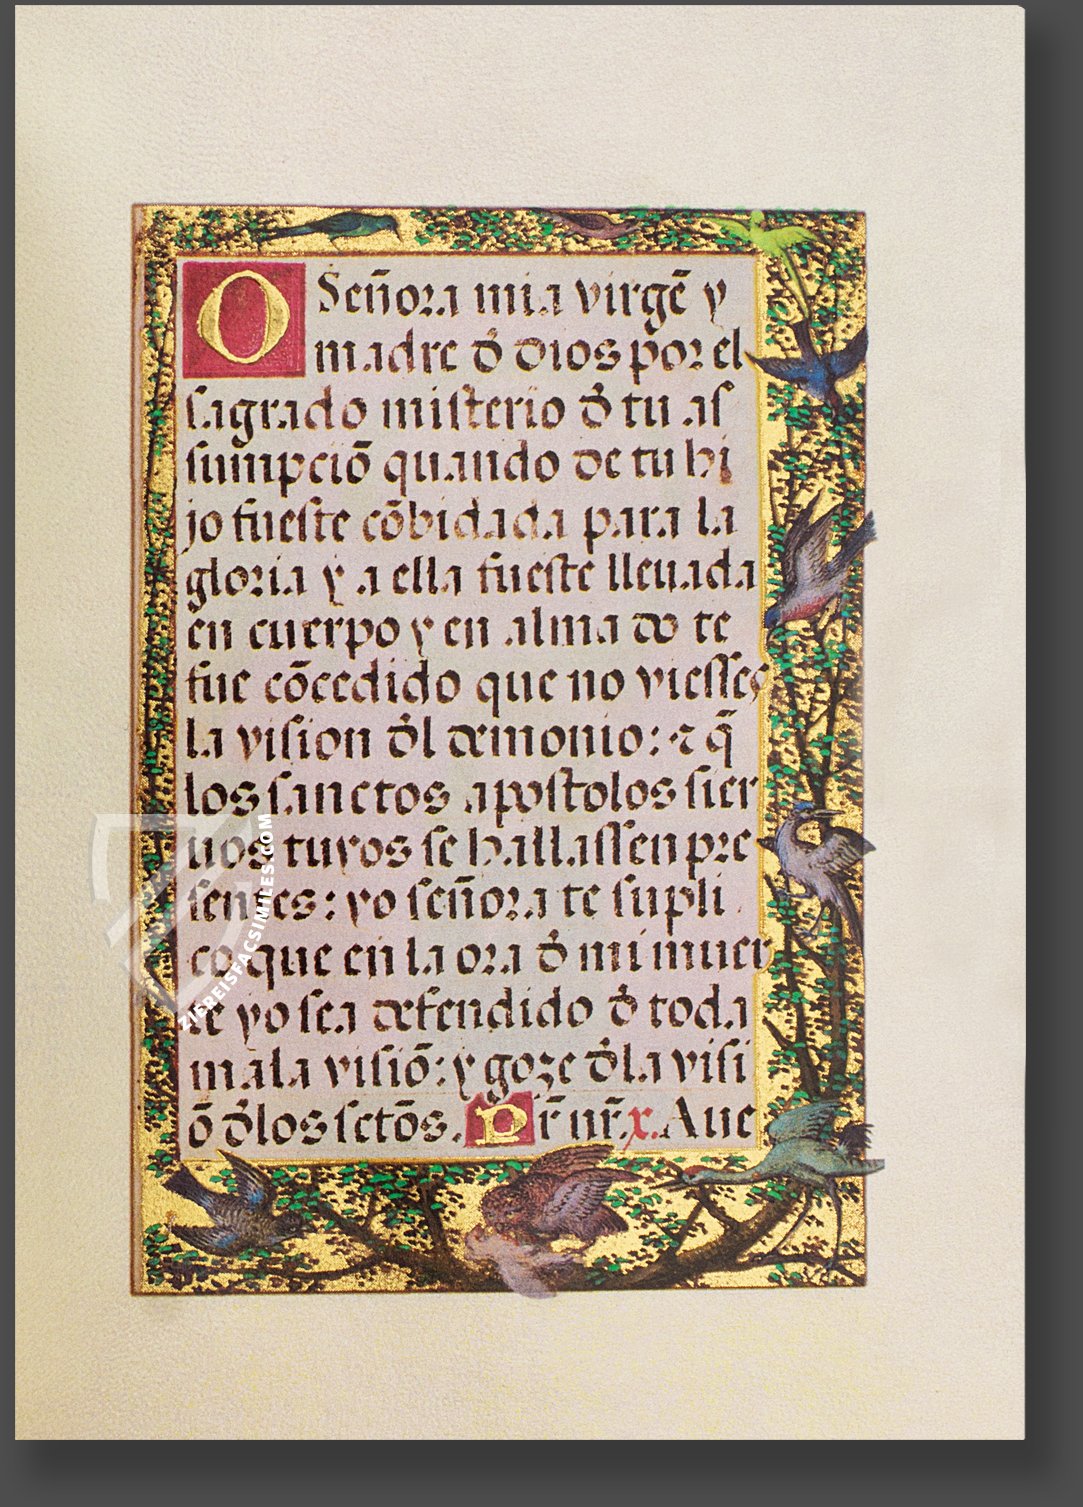 O Señora mia virgē y
madre ď dios por el
sagrado misterio ď tu as
sumpciō quando de tu hi
jo fueste cōbidada para la
gloria y a ella fueste lleuada
en cuerpo y en alma do te
fue cōcedido que no viesses
la vision ďl demonio: ⁊ q̄
los sanctos apostolos sier
uos tuyos se hallassen pre
sentes: yo señora te supli
co que en la ora ď mi muer
te yo sea defendido ď toda
mala visiō: y goze ďla visi
ō ďlos sctōs. Pr̄ nr̄. x. Aue
ZIEREISFACSIMILES.COM